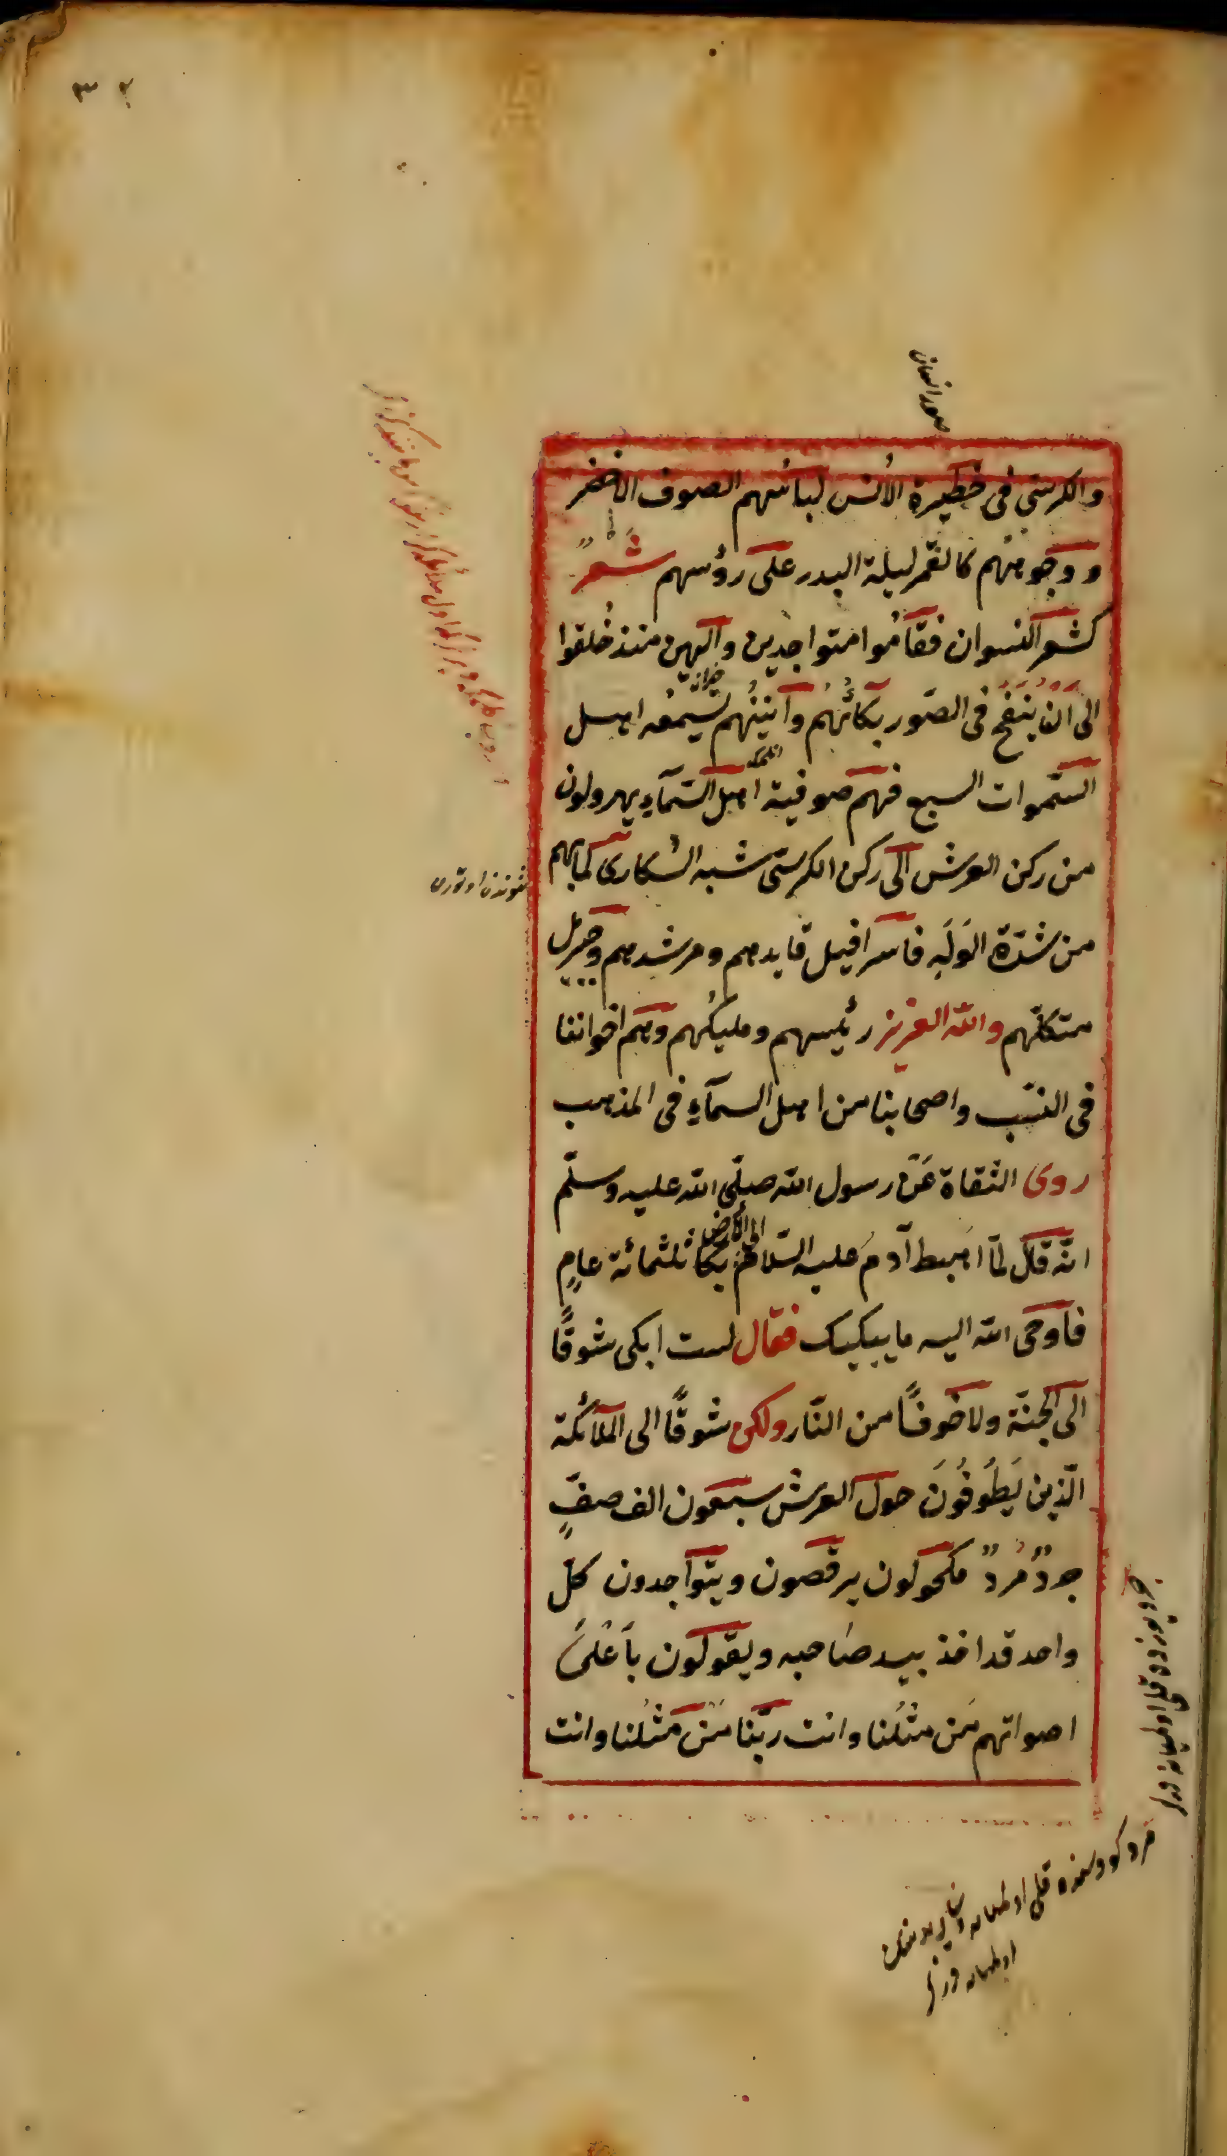 ٣٢
والكرسي في خطيرة الأنس لباسهم الصوف الاخضر
ووجوههم كالقمر ليلة البدر على رؤسهم شعرٌ
كشعر النسوان فقاموا متواجدين والهين منذ خُلقوا
الى اَنْ يُنفَخ في الصّور بكائُهُم وأنينُهُم يسمعُه اهل
السّموات السبع فهم صوفية اهل السّمآءِ يهرولون
من ركن العرش الى ركن الكرسّى شبه السّكارى كمابهم
من شدّة الوَلَهِ فاسرافيل قايدهم ومرشدهم وجبريل
متكلّمهم والله العزيز رئيسهم ومليكُهم وهم اخواننا
في النسَب واصحابنا من اهل السمآءِ في المذهب
روى الثقاة عَنْ رسول الله صلّى الله عليه وسلّم
انّه قال لمّا اهبط آدمُ عليه السّلام الى الأرض بكا ثلثمائة عامٍ
فأوحى الله اليه ما يبكيك فقال لست ابكى شوقًا
الى الجنّة ولا خوفًا من النّار ولكن شوقًا الى الملآئكة
الّذين يَطُوفُونَ حول العرش سبعون الف صفٍّ
جردٌ مُردٌ مكحولون يرقصون ويتواجدون كلّ
واحد قد اخذ بيد صَاحبه ويقولون بأعْلىَ
اصواتهم مَن مثلُنا وانت ربّنا مَنْ مثلُنا وانت